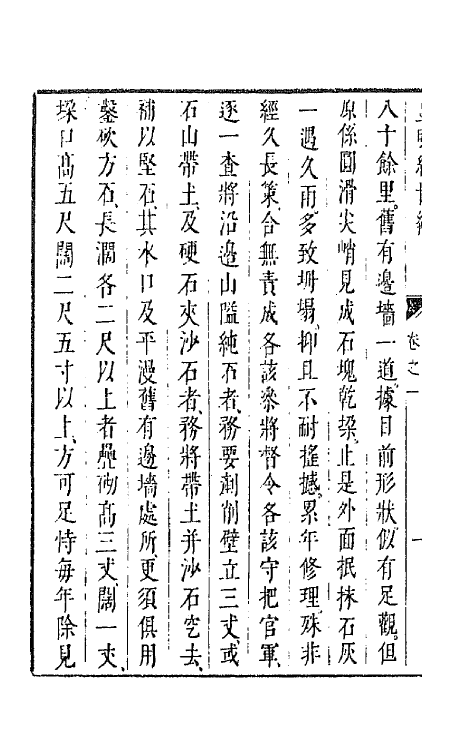 皇明經世編
卷之一
八十餘里。舊有邊墻一道。據目前形狀似有足觀。但
原係圓滑尖峭見成石塊乾垜。止是外面抿抹石灰
一遇久雨。多致坍塌。抑且不耐搖撼。累年修理。殊非
經久長策。合無責成各該叅將督令各該守把官軍
逐一查將沿邊山隘純石者、務要剷削壁立三丈或
石山帶土、及硬石夾沙石者、務將帶土并沙石空去、
補以堅石其水口及平漫舊有邊墻處所、更須俱用
鏨砍方石、長濶各二尺以上者壘砌高三丈闊一丈、
垜口高五尺闊二尺五寸以上、方可足恃每年除見